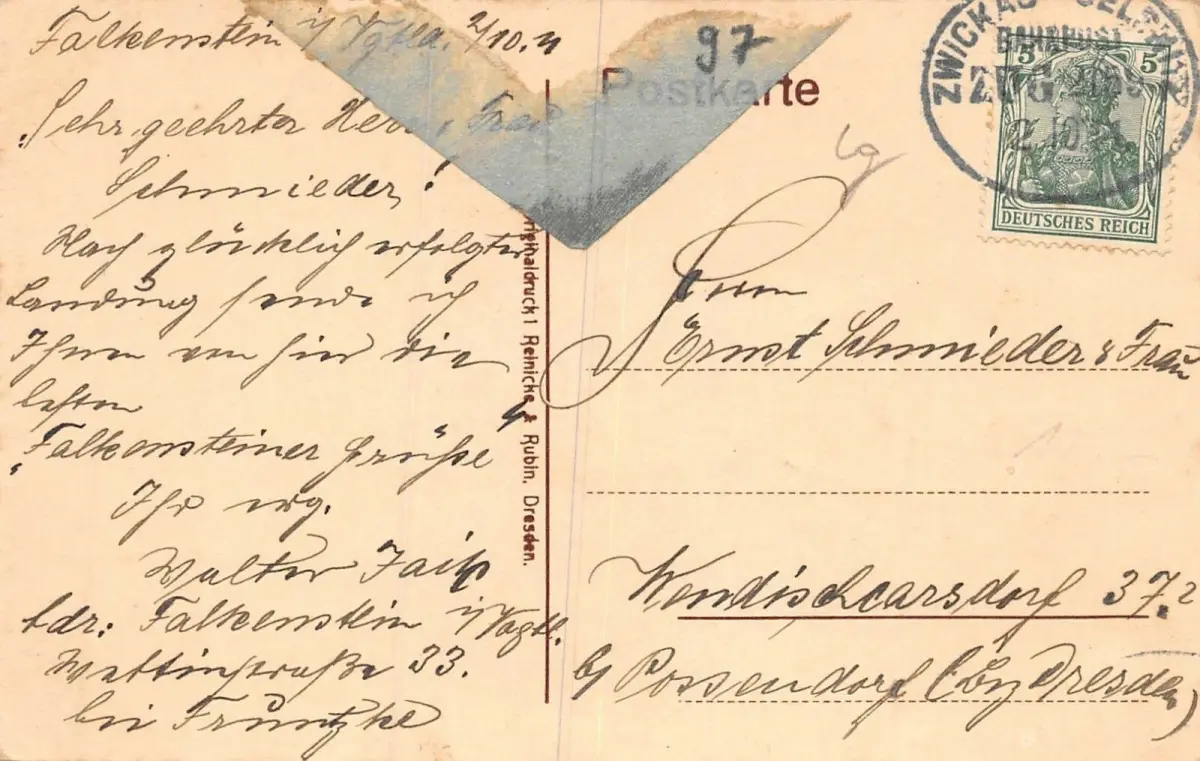 Falkenstein i/ Vgtld. 2/10. 11
Sehr geehrter Herr u. Frau
Schmieder!
Nach glücklich erfolgter
Landung sende ich
Ihnen von hier die
besten
"Falkensteiner Grüße"
Ihr erg.
Walter
Adr: Falkenstein i/Vogtl.
Wettinstraße 33.
bei Fruntzke
97
Postkarte
Originaldruck 1 Reinicke & Rubin, Dresden.
ZWICKAU
BAHNPOST
ZUG
2.10.
5 5
DEUTSCHES REICH
Herrn
Ernst Schmieder & Frau
Wendischcarsdorf 37.
b/ Possendorf (Bz Dresden)